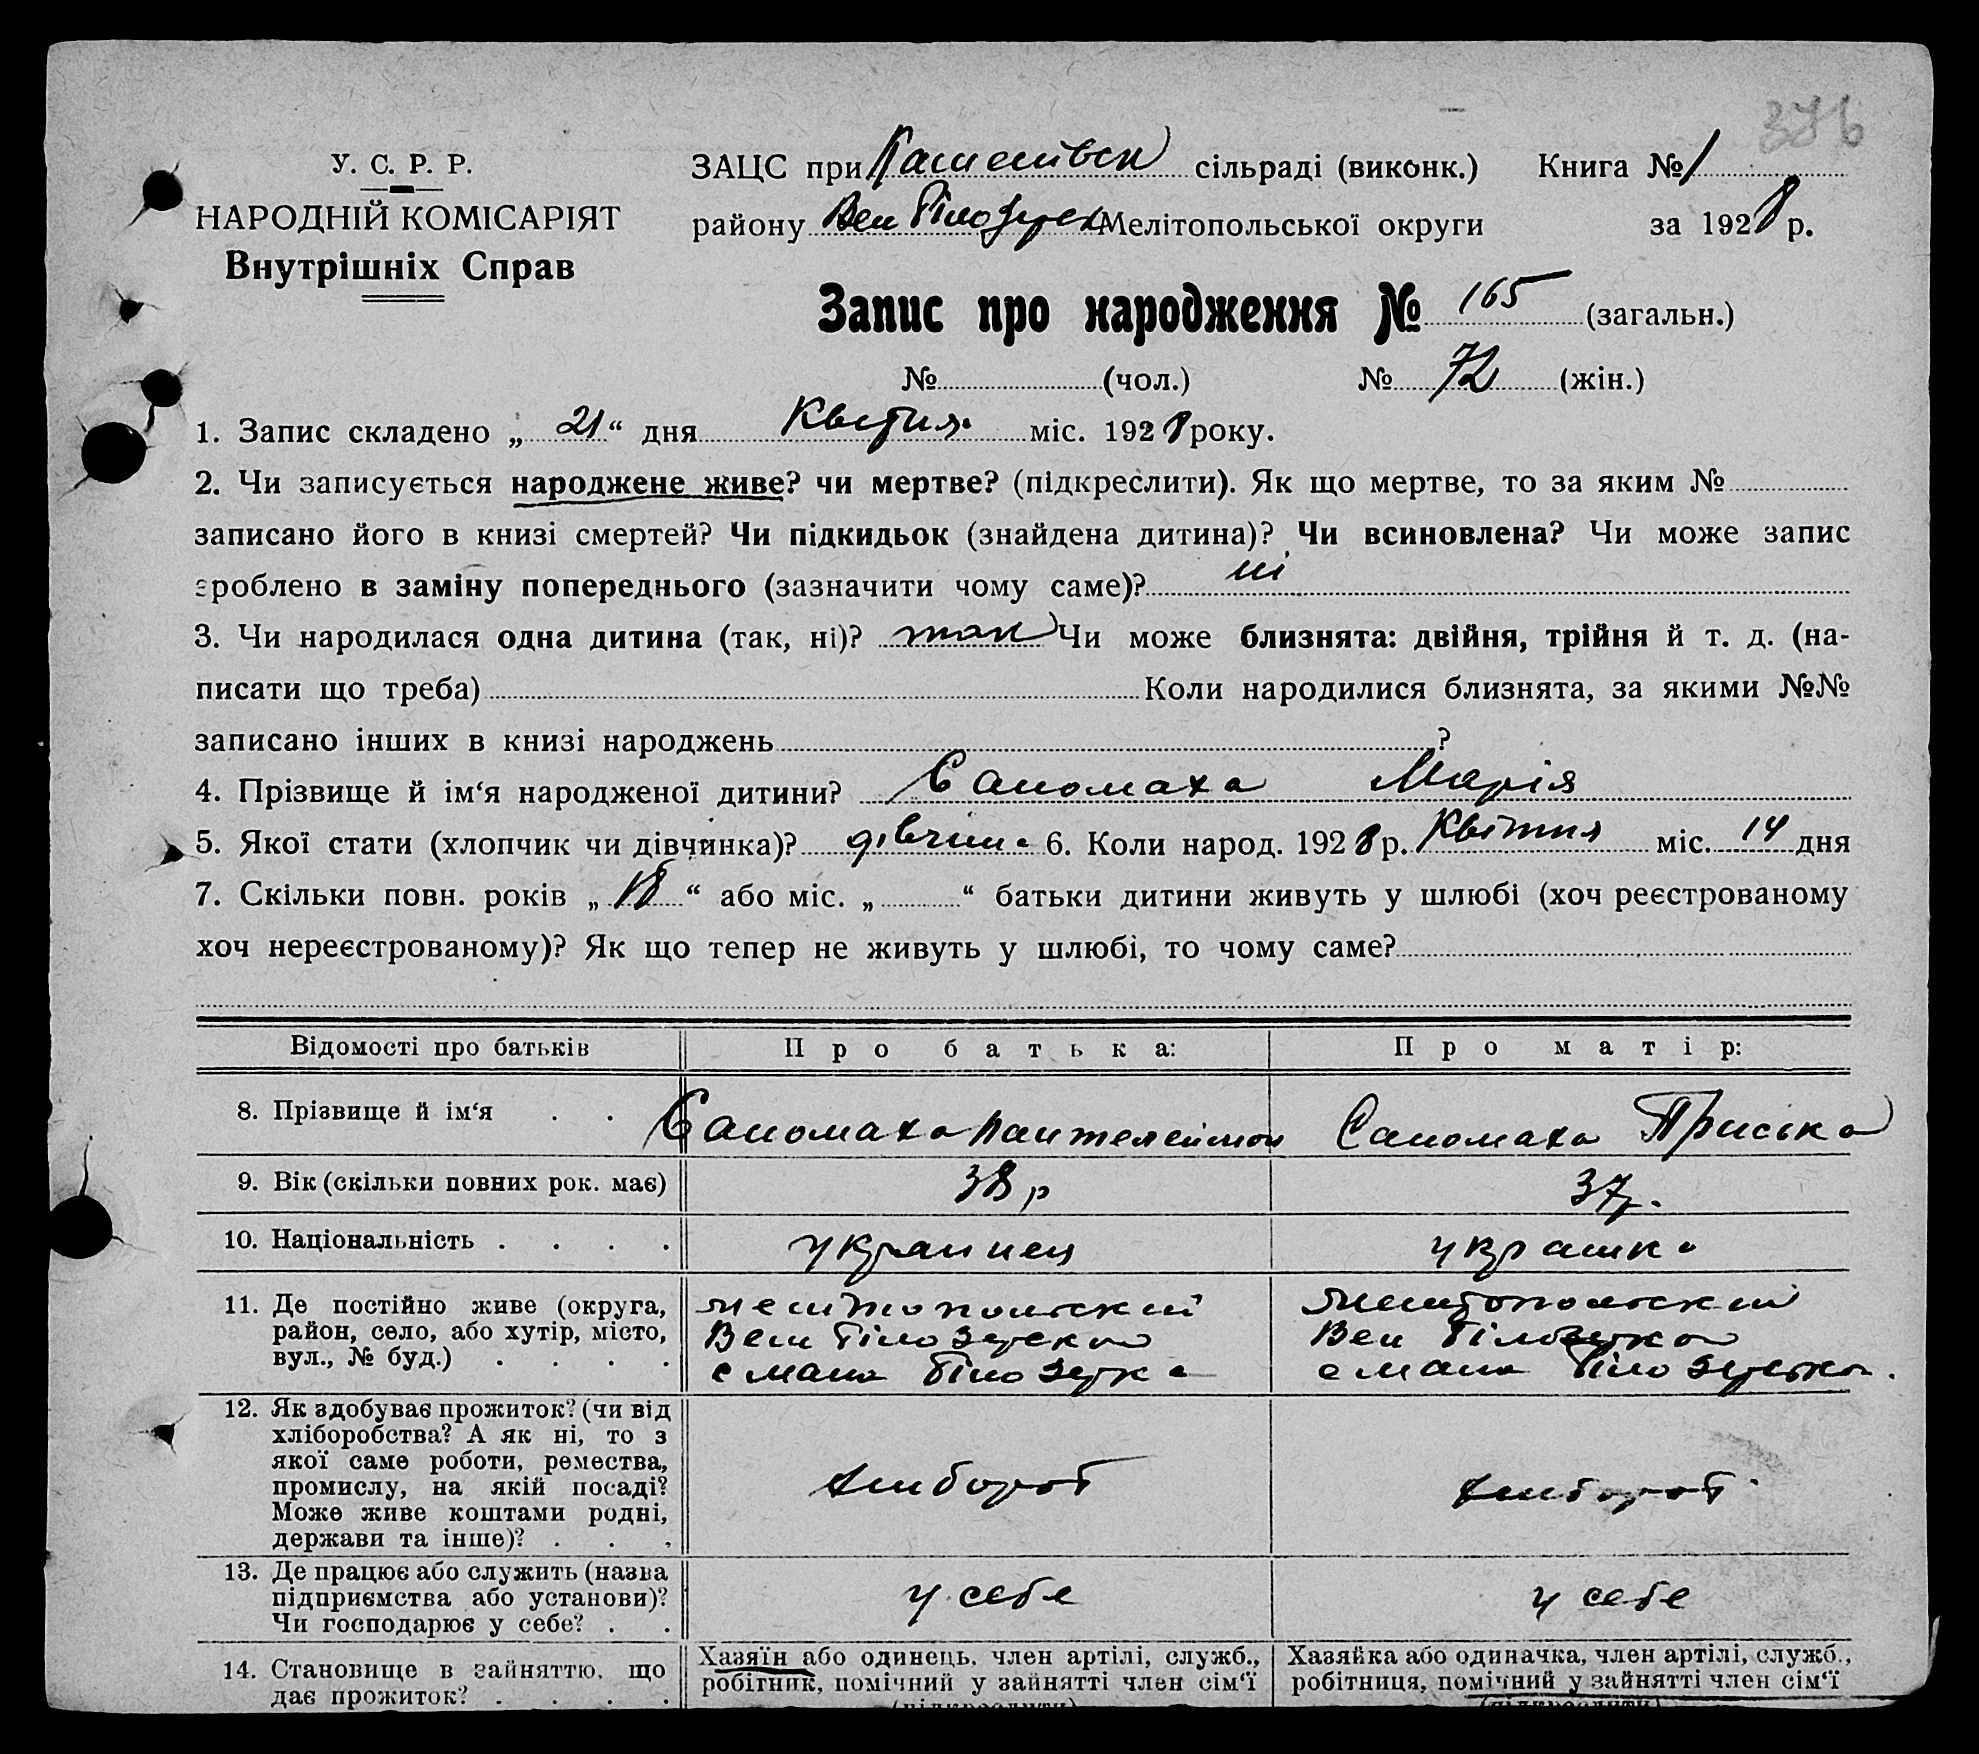 376
У. С. Р. Р.
НАРОДНІЙ КОМІСАРІЯТ
Внутрішніх Справ
ЗАЦС при сільраді (виконк.) Книга № 1
району Вел Білозерск Мелітопольської округи за 1928 р.
Запис про народження № 165 (загальн.)
№ (чол.) № 72 (жін.)
1. Запис складено „ 21 “ дня Квітня міс. 1928 року.
2. Чи записується народжене живе? чи мертве? (підкреслити). Як що мертве, то за яким №
записано його в книзі смертей? Чи підкидьок (знайдена дитина)? Чи всиновлена? Чи може запис
зроблено в заміну попереднього (зазначити чому саме)? ні
3. Чи народилася одна дитина (так, ні)? так Чи може близнята: двійня, трійня й т. д. (на-
писати що треба) Коли народилися близнята, за якими №№
записано інших в книзі народжень ?
4. Прізвище й ім‘я народженої дитини? Саломаха Марія
5. Якої стати (хлопчик чи дівчинка)? дівчин. 6. Коли народ. 1928 р. Квітня міс. 14 дня
7. Скільки повн. років „ 18 “ або міс. „ “ батьки дитини живуть у шлюбі (хоч реєстрованому
хоч нереєстрованому)? Як що тепер не живуть у шлюбі, то чому саме?
Відомості про батьків Про батька: Про матір:
8. Прізвище й ім‘я . . Саломаха Пантелеймон Саломаха Приська
9. Вік (скільки повних рок. має) 38 р 37 р.
10. Національність . . . . українец українка
11. Де постійно живе (округа, мелітопольский Мелітопольский
район, село, або хутір, місто, Вел Білозерска Вел Білозерка
вул., № буд.) . . . . с мала Білозерка с мала Білозерька.
12. Як здобуває прожиток? (чи від
хліборобства? А як ні, то з
якої саме роботи, ремества,
промислу, на якій посаді? хлібороб хлібороб
Може живе коштами родні,
держави та інше)? . . .
13. Де працює або служить (назва
підприємства або установи)? у себе у себе
Чи господарює у себе? . .
14. Становище в зайняттю, що Хазяїн або одинець, член артілі, служб., Хазяйка або одиначка, член артілі, служб.,
дає прожиток? . . . . робітник, помічний у зайнятті член сім‘ї робітниця, помічний у зайнятті член сім‘ї
(підкреслити) (підкреслити)